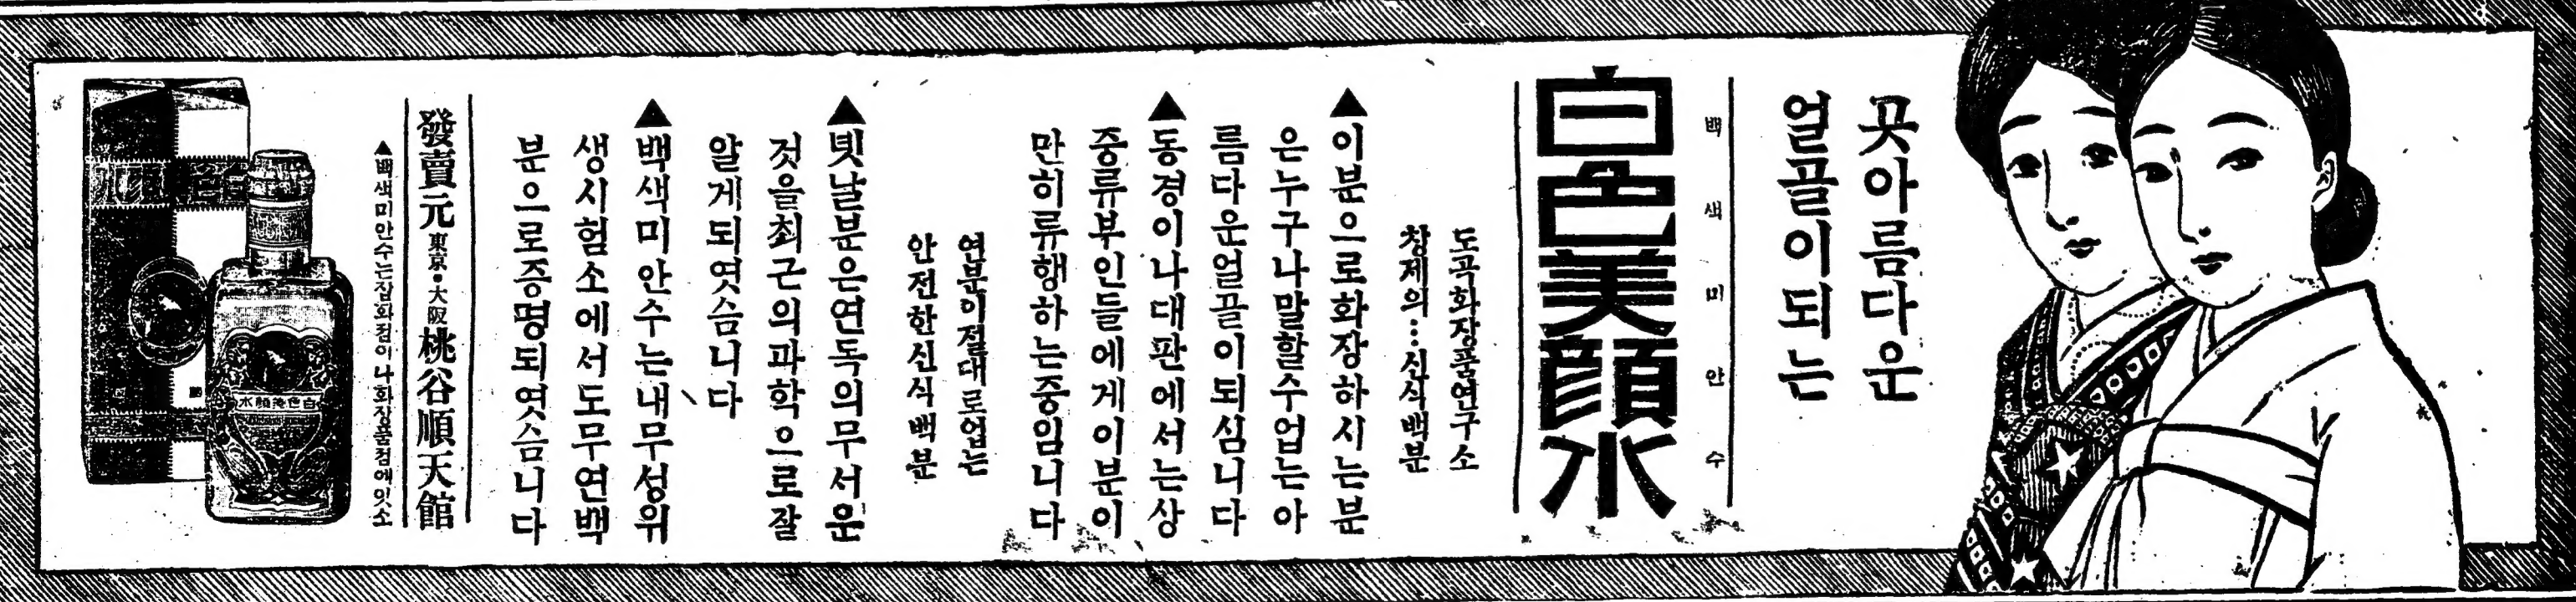 꼿아름다운
얼골이되는
백색미안수
白色美顔水
도곡화장품연구소
창제의…신식백분
▲이분으로화장하시는분
은누구나말할수업는아
름다운얼골이되심니다
▲동경이나대판에서는상
중류부인들에게이분이
만히류행하는중임니다
연분이절대로업는
안전한신식백분
▲녯날분은연독의무서운
것을최근의과학으로잘
알게되엿슴니다
▲백색미안수는내무성위
생시험소에서도무연백
분으로증명되엿슴니다
發賣元 東京•大阪 桃谷順天館
▲백색미안수는잡화점이나화장품점에잇소
水顔美色白